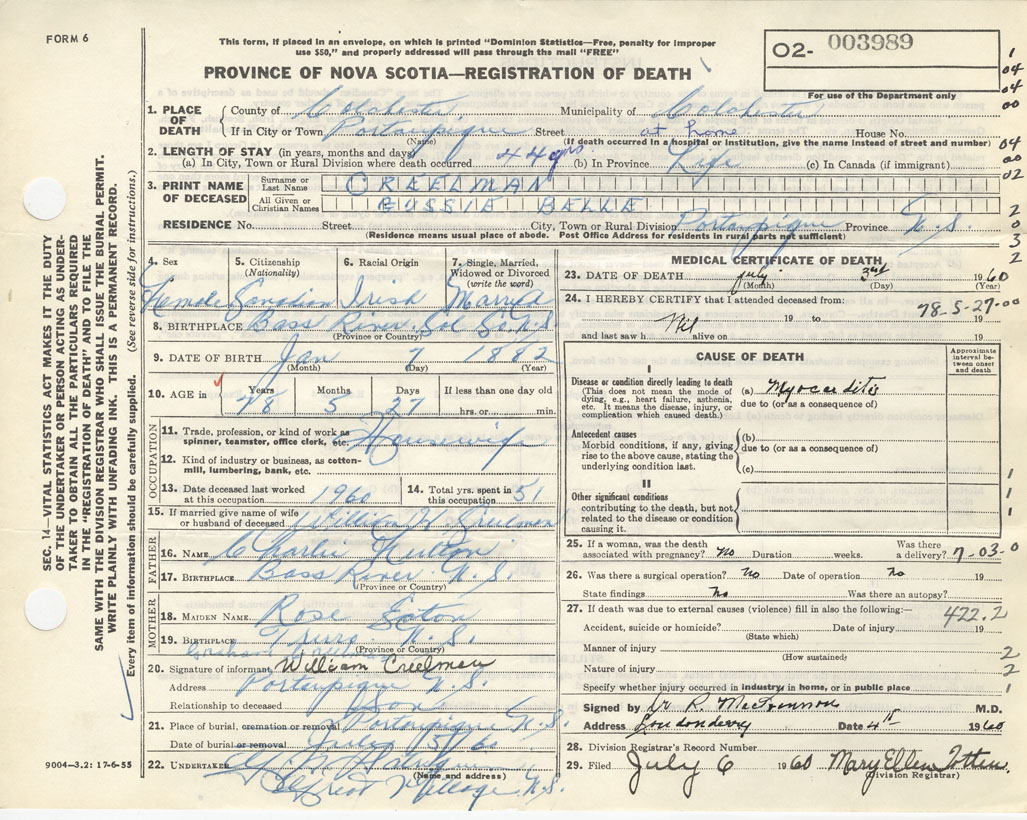 FORM 6
This form, if placed in an envelope, on which is printed "Dominion Statistics—Free, penalty for improper
use $50," and properly addressed will pass through the mail "FREE"
PROVINCE OF NOVA SCOTIA—REGISTRATION OF DEATH
02- 003989
For use of the Department only
1. PLACE OF DEATH
County of Colchester Municipality of Colchester
If in City or Town Portaupique Street at home House No.
(Name) (If death occurred in a hospital or institution, give the name instead of street and number)
2. LENGTH OF STAY (in years, months and days)
(a) In City, Town or Rural Division where death occurred 44 yrs (b) In Province Life (c) In Canada (if immigrant)
3. PRINT NAME OF DECEASED
Surname or Last Name CREELMAN
All Given or Christian Names BELLE
RESIDENCE No. Street City, Town or Rural Division Portaupique Province N.S.
(Residence means usual place of abode. Post Office Address for residents in rural parts not sufficient)
4. Sex Female
5. Citizenship (Nationality) Canadian
6. Racial Origin Irish
7. Single, Married, Widowed or Divorced (write the word) Married
8. BIRTHPLACE Bass River Col Co N.S
(Province or Country)
9. DATE OF BIRTH Jan 7 1882
(Month) (Day) (Year)
10. AGE in Years 78 Months 5 Days 27 If less than one day old hrs. or min.
OCCUPATION
11. Trade, profession, or kind of work as spinner, teamster, office clerk, etc. Housewife
12. Kind of industry or business, as cotton-mill, lumbering, bank, etc.
13. Date deceased last worked at this occupation 1960
14. Total yrs. spent in this occupation 51
15. If married give name of wife or husband of deceased William H Creelman
FATHER
16. NAME Charlie Fulton
17. BIRTHPLACE Bass River N.S.
(Province or Country)
MOTHER
18. MAIDEN NAME Rose Eaton
19. BIRTHPLACE Truro N.S.
(Province or Country)
20. Signature of informant William Creelman
Address Portaupique N.S.
Relationship to deceased Son
21. Place of burial, cremation or removal Portaupique N.S.
Date of burial or removal July 5/60
22. UNDERTAKER
(Name and address)
Great Village N.S.
MEDICAL CERTIFICATE OF DEATH
23. DATE OF DEATH July 3rd 1960
(Month) (Day) (Year)
24. I HEREBY CERTIFY that I attended deceased from:
78-5-27-00
Nil 19 to 19
and last saw h alive on 19
CAUSE OF DEATH
Approximate interval between onset and death
I
Disease or condition directly leading to death
(This does not mean the mode of dying, e.g., heart failure, asthenia, etc. It means the disease, injury, or complication which caused death.)
(a) Myocarditis
due to (or as a consequence of)
Antecedent causes
Morbid conditions, if any, giving rise to the above cause, stating the underlying condition last.
(b)
due to (or as a consequence of)
(c)
II
Other significant conditions
contributing to the death, but not related to the disease or condition causing it.
25. If a woman, was the death associated with pregnancy? No Duration weeks. Was there a delivery? 7-03-0
26. Was there a surgical operation? No Date of operation No 19
State findings No Was there an autopsy?
27. If death was due to external causes (violence) fill in also the following:— 422.2
Accident, suicide or homicide? Date of injury 19
(State which)
Manner of injury
(How sustained)
Nature of injury
Specify whether injury occurred in industry, in home, or in public place
Signed by M.D.
Address Londonderry Date 4th 1960
28. Division Registrar's Record Number
29. Filed July 6 1960 Mary Ellen Totten
(Division Registrar)
SEC. 14—VITAL STATISTICS ACT MAKES IT THE DUTY
OF THE UNDERTAKER OR PERSON ACTING AS UNDER-
TAKER TO OBTAIN ALL THE PARTICULARS REQUIRED
IN THE "REGISTRATION OF DEATH" AND TO FILE THE
SAME WITH THE DIVISION REGISTRAR WHO SHALL ISSUE THE BURIAL PERMIT.
WRITE PLAINLY WITH UNFADING INK. THIS IS A PERMANENT RECORD.
Every item of information should be carefully supplied. (See reverse side for instructions.)
9004—3.2: 17-6-55
1
04
04
00
04
00
02
2
0
3
2
1
1
1
2
2
1